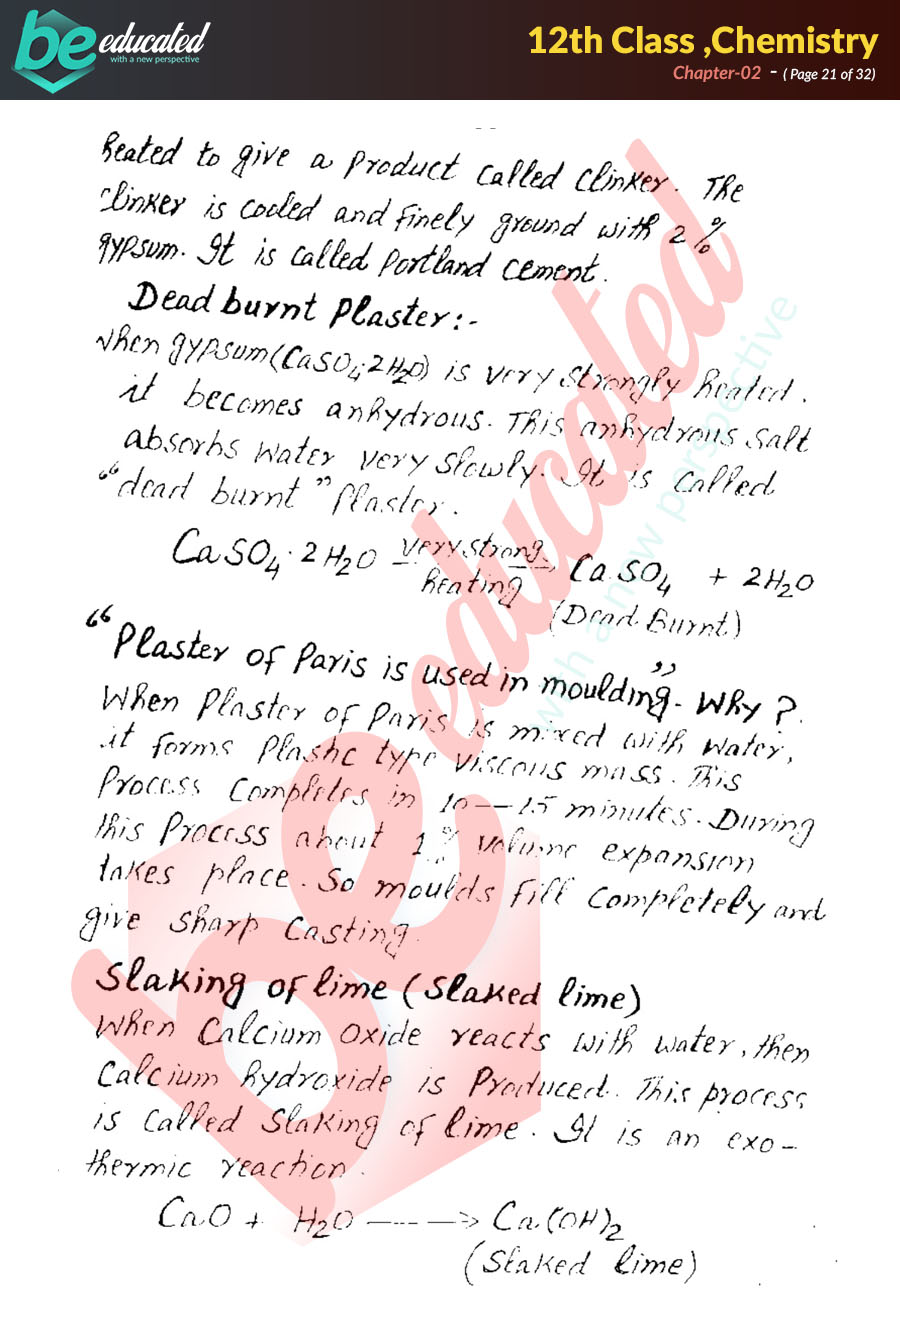 be educated
with a new perspective
12th Class ,Chemistry
Chapter-02 - ( Page 21 of 32)
heated to give a product called clinker. The
clinker is cooled and finely ground with 2%
gypsum. It is called portland cement.
Dead burnt Plaster:-
when gypsum (CaSO4.2H2O) is very strongly heated.
it becomes anhydrous. This anhydrous salt
absorbs water very slowly. It is called
"dead burnt" Plaster.
CaSO4.2H2O very strong heating → CaSO4 + 2H2O
(Dead Burnt)
"Plaster of Paris is used in moulding". Why?
When Plaster of Paris is mixed with water,
it forms plastic type viscous mass. This
process completes in 10—15 minutes. During
this process about 1% volume expansion
takes place. So moulds fill completely and
give sharp casting.
Slaking of lime (Slaked lime)
When Calcium oxide reacts with water, then
Calcium hydroxide is produced. This process
is called slaking of lime. It is an exo-
thermic reaction.
CaO + H2O ----→ Ca(OH)2
(Slaked lime)
be educated
with a new perspective